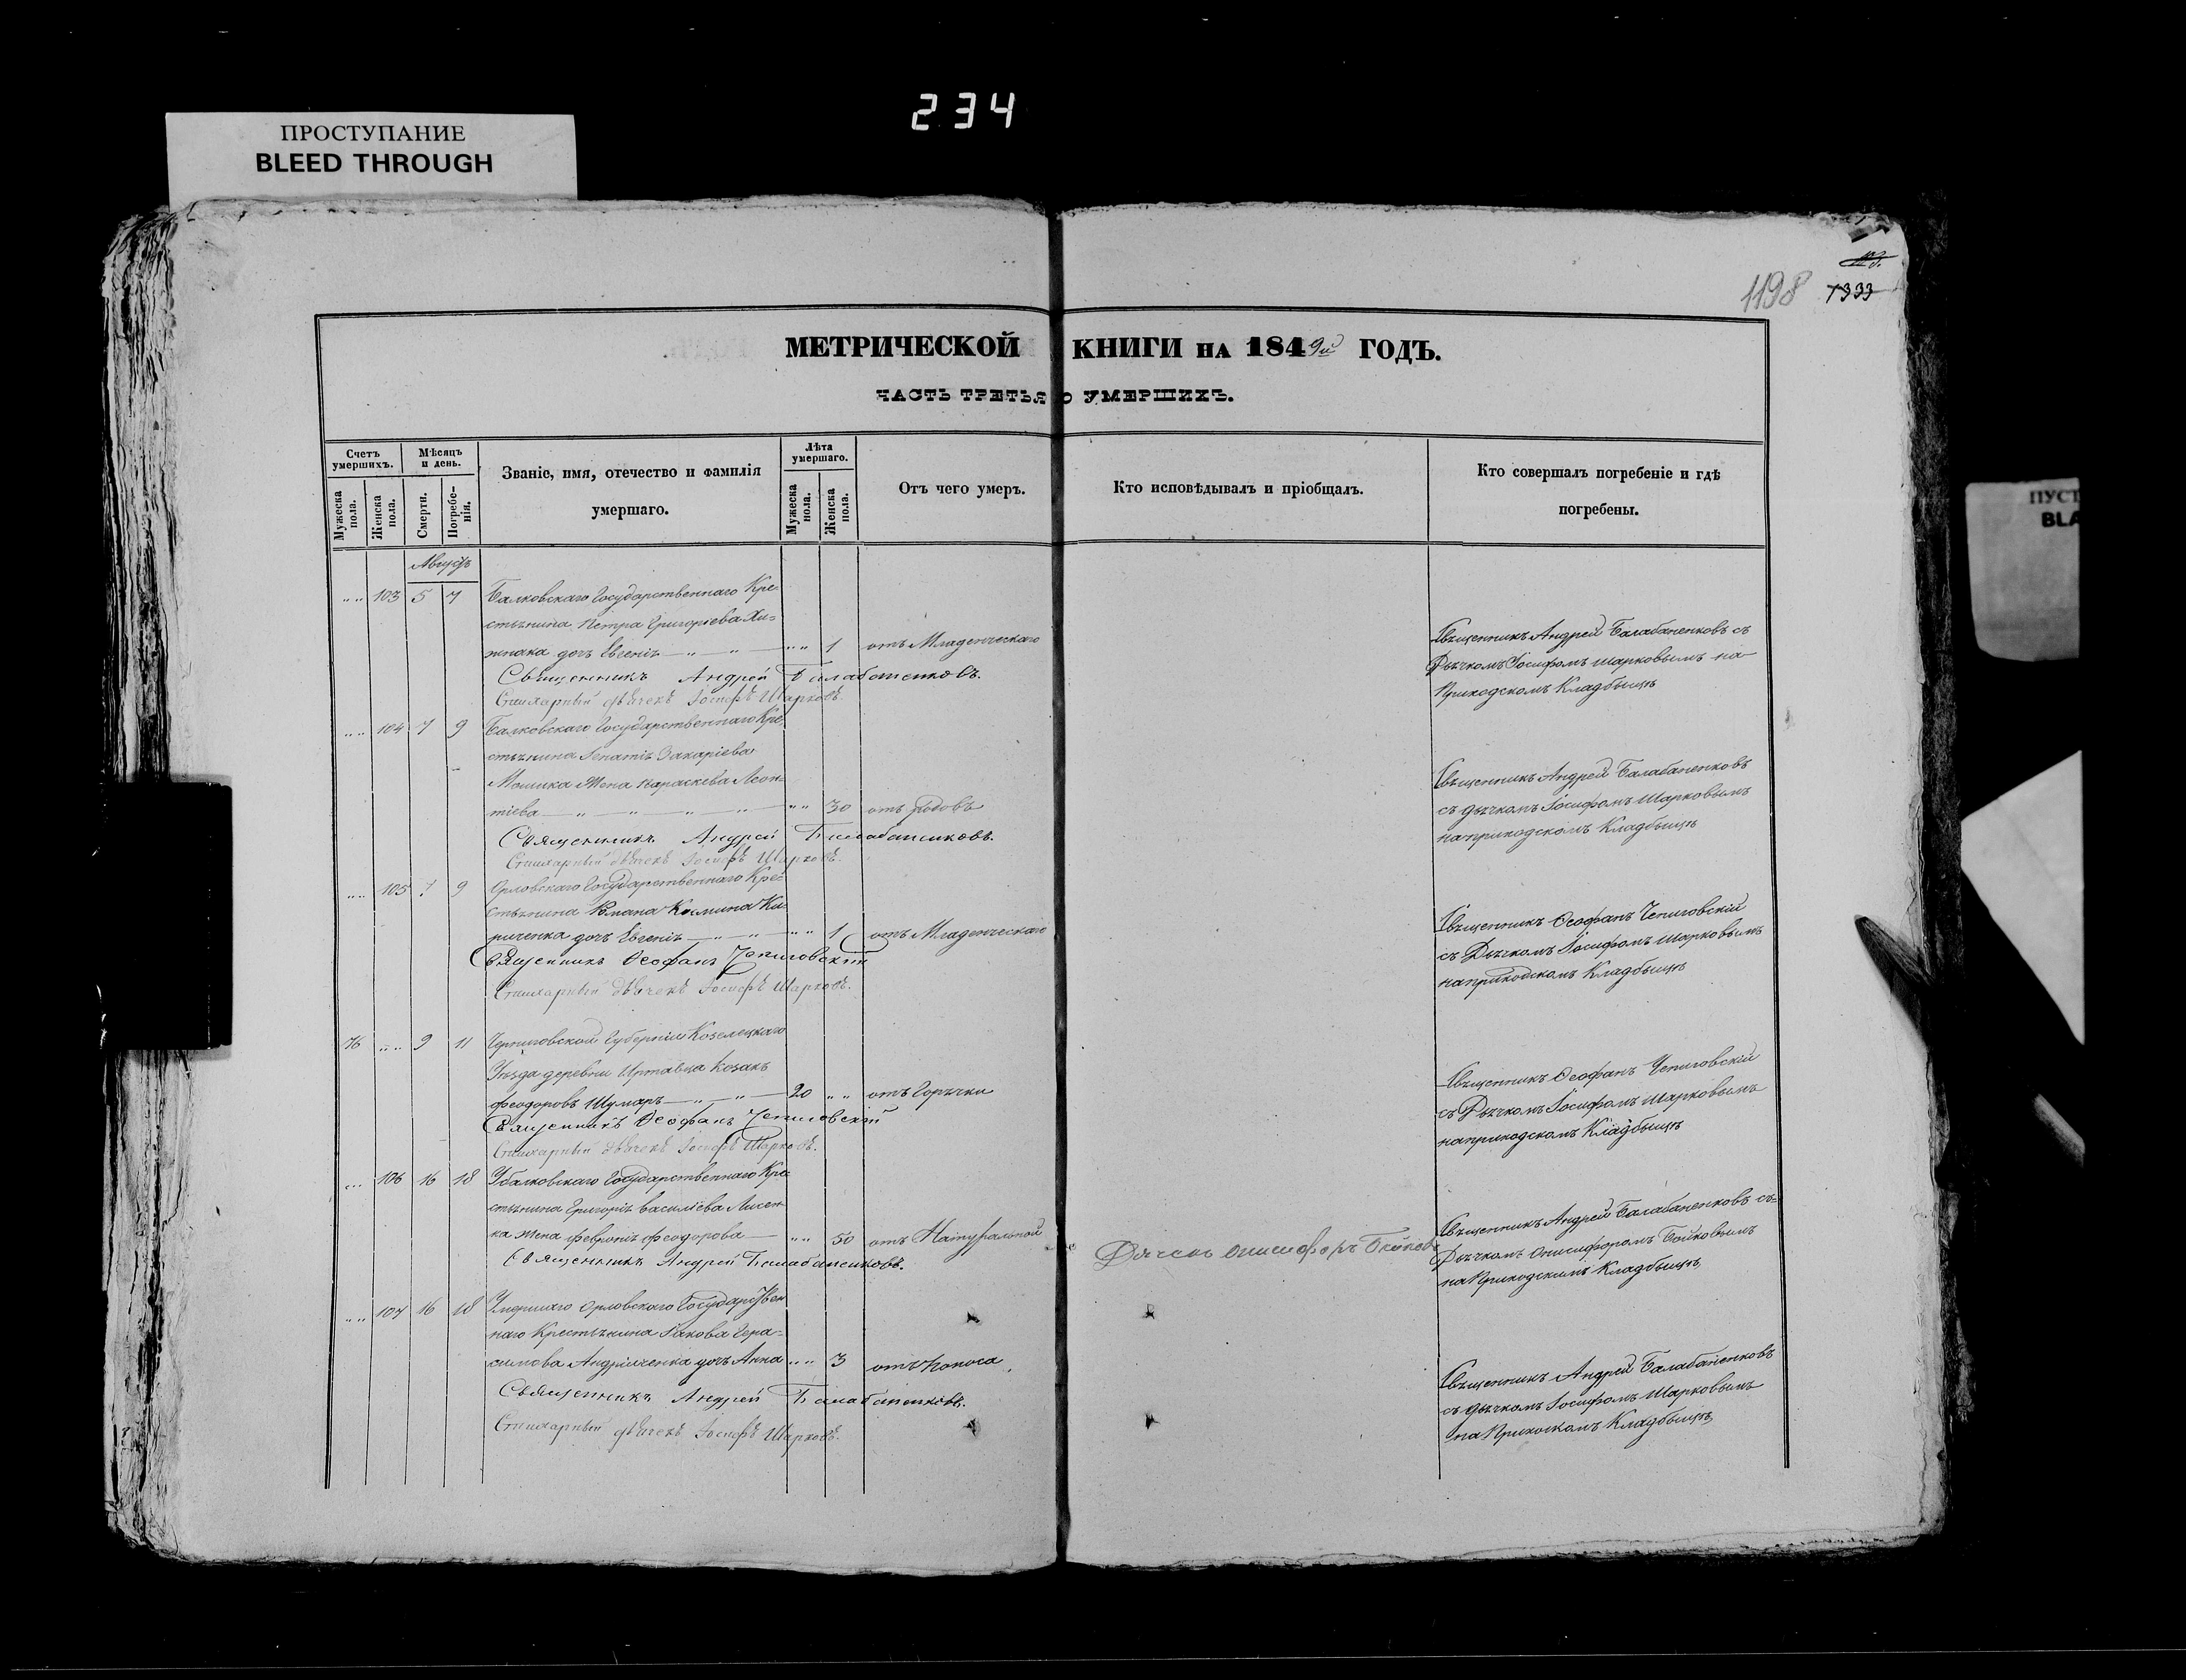 234
ПРОСТУПАНИЕ
BLEED THROUGH
1198 1333
МЕТРИЧЕСКОЙ КНИГИ НА 1849й ГОДЪ.
ЧАСТЬ ТРЕТЬЯ О УМЕРШИХЪ.
Счетъ умершихъ.
Мужеска пола.
Женска пола.
Мѣсяцъ и день.
Смерти.
Погребе-
нія.
Званіе, имя, отечество и фамилія
умершаго.
Лѣта умершаго.
Мужеска пола.
Женска пола.
Отъ чего умеръ.
Кто исповѣдывалъ и пріобщалъ.
Кто совершалъ погребеніе и гдѣ
погребены.
ПУСТ
BLA
Августъ
„ „ 103 5 7 Балковскаго Государственнаго Кре-
стьянина Петра Григоріева Хи-
жнака дочь Евгенія — „ — „ — „ „ 1 отъ Младенческаго
Священникъ Андрей Балабаненковъ.
Стихарный дьячекъ Іосифъ Шарковъ.
Священникъ Андрей Балабаненковъ съ
Дьячкомъ Іосифомъ Шарковымъ на
Приходскомъ Кладбищѣ
„ „ 104 7 9 Балковскаго Государственнаго Кре-
стьянина Игнатія Захаріева
Мошика Жена Параскева Леон-
тіева — „ — „ — „ — „ — „ „ 30 отъ Родовъ
Священникъ Андрей Балабаненковъ.
Стихарный дьячекъ Іосифъ Шарковъ.
Священникъ Андрей Балабаненковъ
съ дьячкомъ Іосифомъ Шарковымъ
на приходскомъ Кладбищѣ
„ „ 105 7 9 Орловскаго Государственнаго Кре-
стьянина Козмина Ки-
риченка дочь Евгенія — „ — „ — „ „ 1 отъ Младенческаго
Священникъ Ѳеофанъ Чепиговскій
Стихарный дьячекъ Іосифъ Шарковъ.
Священникъ Ѳеофанъ Чепиговскій
съ Дьячкомъ Іосифомъ Шарковымъ
на приходскомъ Кладбищѣ
76 „ „ 9 11 Черниговской Губерніи Козелецкаго
Уѣзда деревни Козакъ
Феодоровъ Шумаръ — „ — „ — 20 „ „ отъ Горячки
Священникъ Ѳеофанъ Чепиговскій
Стихарный дьячекъ Іосифъ Шарковъ.
Священникъ Ѳеофанъ Чепиговскій
съ Дьячкомъ Іосифомъ Шарковымъ
на приходскомъ Кладбищѣ
„ „ 106 16 18 Государственнаго Кре-
стьянина Григорія Василіева Лисен-
ка жена Февронія Феодорова — „ „ 50 отъ Натуральной
Священникъ Андрей Балабаненковъ.
Дьячекъ Онисифоръ Бойковъ
Священникъ Андрей Балабаненковъ съ
Дьячкомъ Онисифоромъ Бойковымъ
на Приходскомъ Кладбищѣ
„ „ 107 16 18 Умершаго Орловскаго Государствен
наго Крестьянина Іакова Гера-
симова Андріяченка дочь Анна „ „ 3 отъ Поноса
Священникъ Андрей Балабаненковъ.
Стихарный дьячекъ Іосифъ Шарковъ.
Священникъ Андрей Балабаненковъ
съ дьячкомъ Іосифомъ Шарковымъ
на Прихоскомъ Кладбищѣ